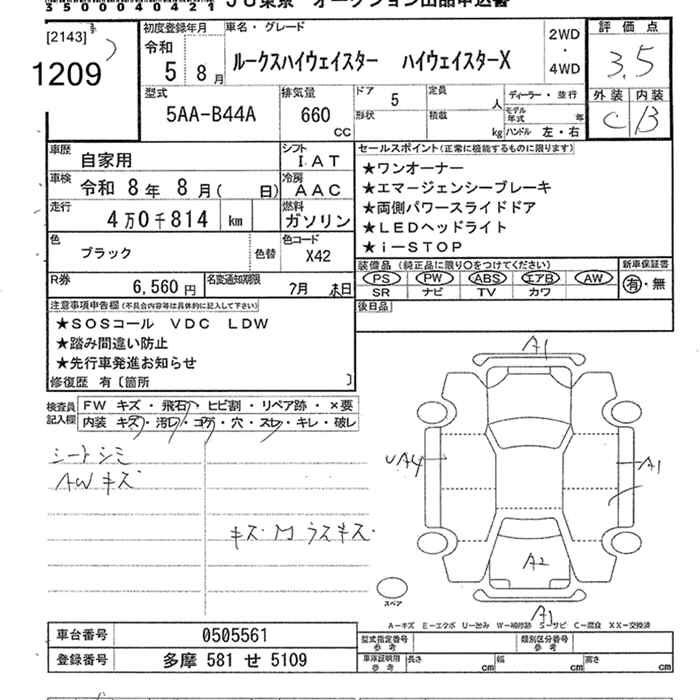 35000040421 JU東京 オークション出品申込書
[2143]
1209
初度登録年月
令和
5 8月
車名・グレード
ルークスハイウェイスター ハイウェイスターX
2WD
・
4WD
評価点
3.5
外装 内装
C B
型式
5AA-B44A
排気量
660
CC
ドア
5
形状
定員
人
積載
kg
ディーラー・並行
モデル年式
年
ハンドル 左・右
車歴
自家用
シフト
IAT
車検
令和 8年 8月( 日)
冷房
AAC
走行
4万0千814 km
燃料
ガソリン
色
ブラック
色替
色コード
X42
R券
6,560円
名変通知期限
7月 末日
セールスポイント(正常に機能するものに限ります)
★ワンオーナー
★エマージェンシーブレーキ
★両側パワースライドドア
★LEDヘッドライト
★i-STOP
装備品(純正品に限り○をつけてください)
PS PW ABS エアB AW
SR ナビ TV カワ
新車保証書
有・無
後日品
注意事項申告欄(不具合内容等は具体的に記入して下さい)
★SOSコール VDC LDW
★踏み間違い防止
★先行車発進お知らせ
修復歴 有〔箇所 〕
検査員
記入欄
FW キズ・飛石・ヒビ割・リペア跡・×要
内装 キズ・汚レ・コゲ・穴・スレ・キレ・破レ
シートシミ
AWキズ
キズ・M ラスキズ・
A1
UA4
A1
A2
A1
スペア
A-キズ E-エクボ U-凹み W-補修跡 S-サビ C-腐食 XX-交換済
車台番号
0505561
登録番号
多摩 581 せ 5109
型式指定番号
参考
類別区分番号
参考
車庫証明用
参考
長さ
cm
幅
cm
高さ
cm